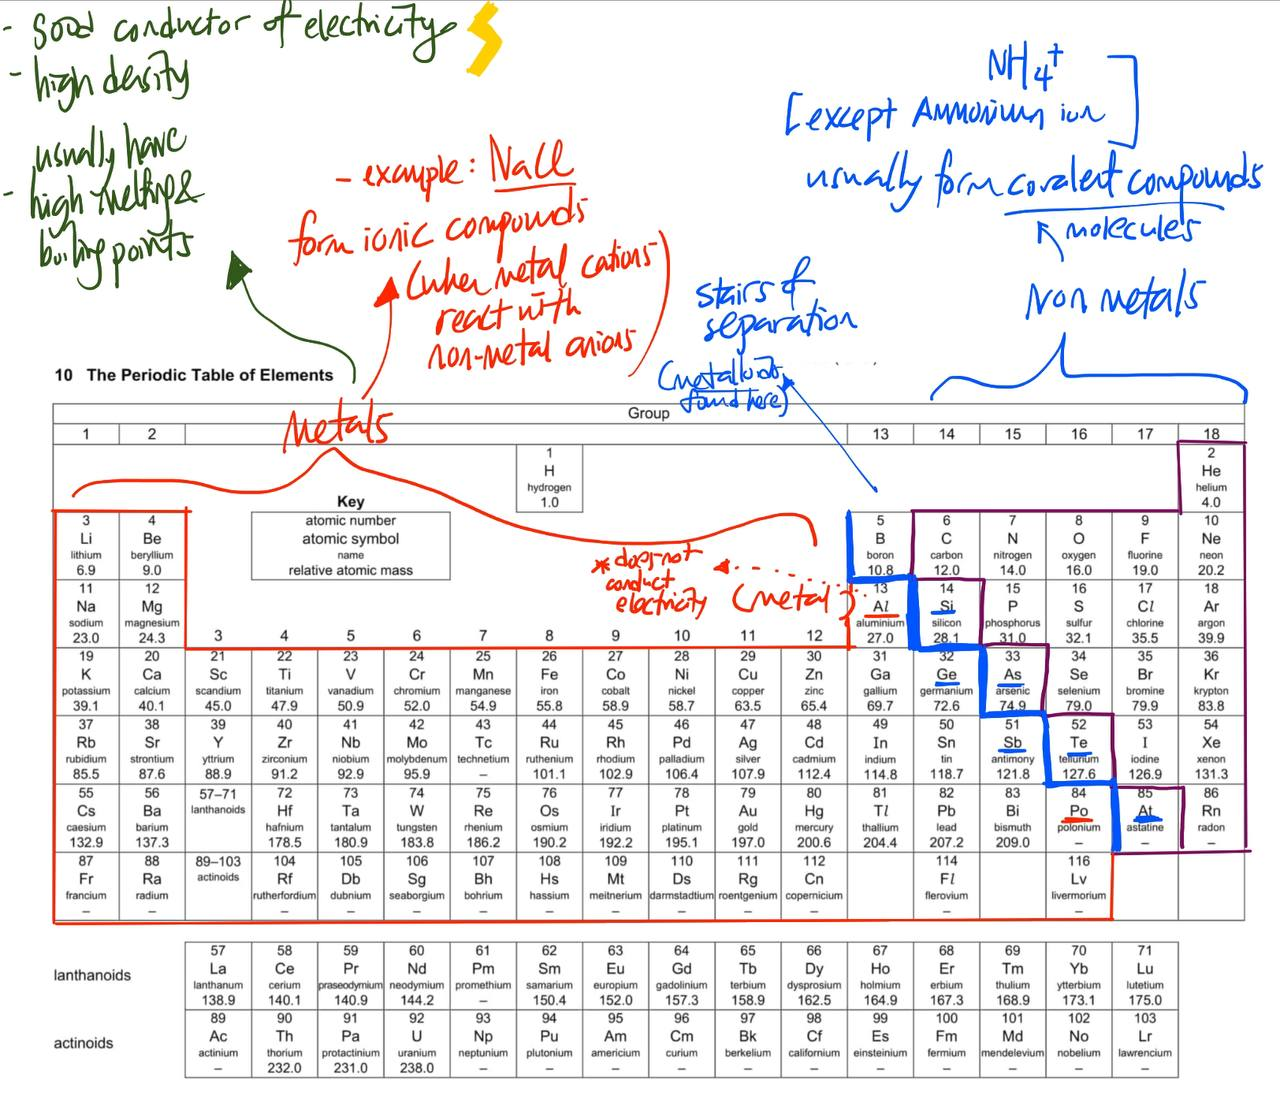 - good conductor of electricity
- high density
usually have
- high melting &
boiling points
- example: NaCl
form ionic compounds
(when metal cations
react with
non-metal anions)
NH4+
[except Ammonium ion]
usually form covalent compounds
molecules
Non metals
stairs of
separation
(metalloids
found here)
10 The Periodic Table of Elements
Metals
Group
1 2 13 14 15 16 17 18
1 2
H He
hydrogen helium
1.0 4.0
Key
atomic number
atomic symbol
name
relative atomic mass
* does not
conduct
electricity
(metal)
3 4 5 6 7 8 9 10
Li Be B C N O F Ne
lithium beryllium boron carbon nitrogen oxygen fluorine neon
6.9 9.0 10.8 12.0 14.0 16.0 19.0 20.2
11 12 13 14 15 16 17 18
Na Mg Al Si P S Cl Ar
sodium magnesium aluminium silicon phosphorus sulfur chlorine argon
23.0 24.3 3 4 5 6 7 8 9 10 11 12 27.0 28.1 31.0 32.1 35.5 39.9
19 20 21 22 23 24 25 26 27 28 29 30 31 32 33 34 35 36
K Ca Sc Ti V Cr Mn Fe Co Ni Cu Zn Ga Ge As Se Br Kr
potassium calcium scandium titanium vanadium chromium manganese iron cobalt nickel copper zinc gallium germanium arsenic selenium bromine krypton
39.1 40.1 45.0 47.9 50.9 52.0 54.9 55.8 58.9 58.7 63.5 65.4 69.7 72.6 74.9 79.0 79.9 83.8
37 38 39 40 41 42 43 44 45 46 47 48 49 50 51 52 53 54
Rb Sr Y Zr Nb Mo Tc Ru Rh Pd Ag Cd In Sn Sb Te I Xe
rubidium strontium yttrium zirconium niobium molybdenum technetium ruthenium rhodium palladium silver cadmium indium tin antimony tellurium iodine xenon
85.5 87.6 88.9 91.2 92.9 95.9 – 101.1 102.9 106.4 107.9 112.4 114.8 118.7 121.8 127.6 126.9 131.3
55 56 57–71 72 73 74 75 76 77 78 79 80 81 82 83 84 85 86
Cs Ba lanthanoids Hf Ta W Re Os Ir Pt Au Hg Tl Pb Bi Po At Rn
caesium barium hafnium tantalum tungsten rhenium osmium iridium platinum gold mercury thallium lead bismuth polonium astatine radon
132.9 137.3 178.5 180.9 183.8 186.2 190.2 192.2 195.1 197.0 200.6 204.4 207.2 209.0 – – –
87 88 89–103 104 105 106 107 108 109 110 111 112 114 116
Fr Ra actinoids Rf Db Sg Bh Hs Mt Ds Rg Cn Fl Lv
francium radium rutherfordium dubnium seaborgium bohrium hassium meitnerium darmstadtium roentgenium copernicium flerovium livermorium
– – – – – – – – – – – – –
57 58 59 60 61 62 63 64 65 66 67 68 69 70 71
lanthanoids La Ce Pr Nd Pm Sm Eu Gd Tb Dy Ho Er Tm Yb Lu
lanthanum cerium praseodymium neodymium promethium samarium europium gadolinium terbium dysprosium holmium erbium thulium ytterbium lutetium
138.9 140.1 140.9 144.2 – 150.4 152.0 157.3 158.9 162.5 164.9 167.3 168.9 173.1 175.0
89 90 91 92 93 94 95 96 97 98 99 100 101 102 103
actinoids Ac Th Pa U Np Pu Am Cm Bk Cf Es Fm Md No Lr
actinium thorium protactinium uranium neptunium plutonium americium curium berkelium californium einsteinium fermium mendelevium nobelium lawrencium
– 232.0 231.0 238.0 – – – – – – – – – – –